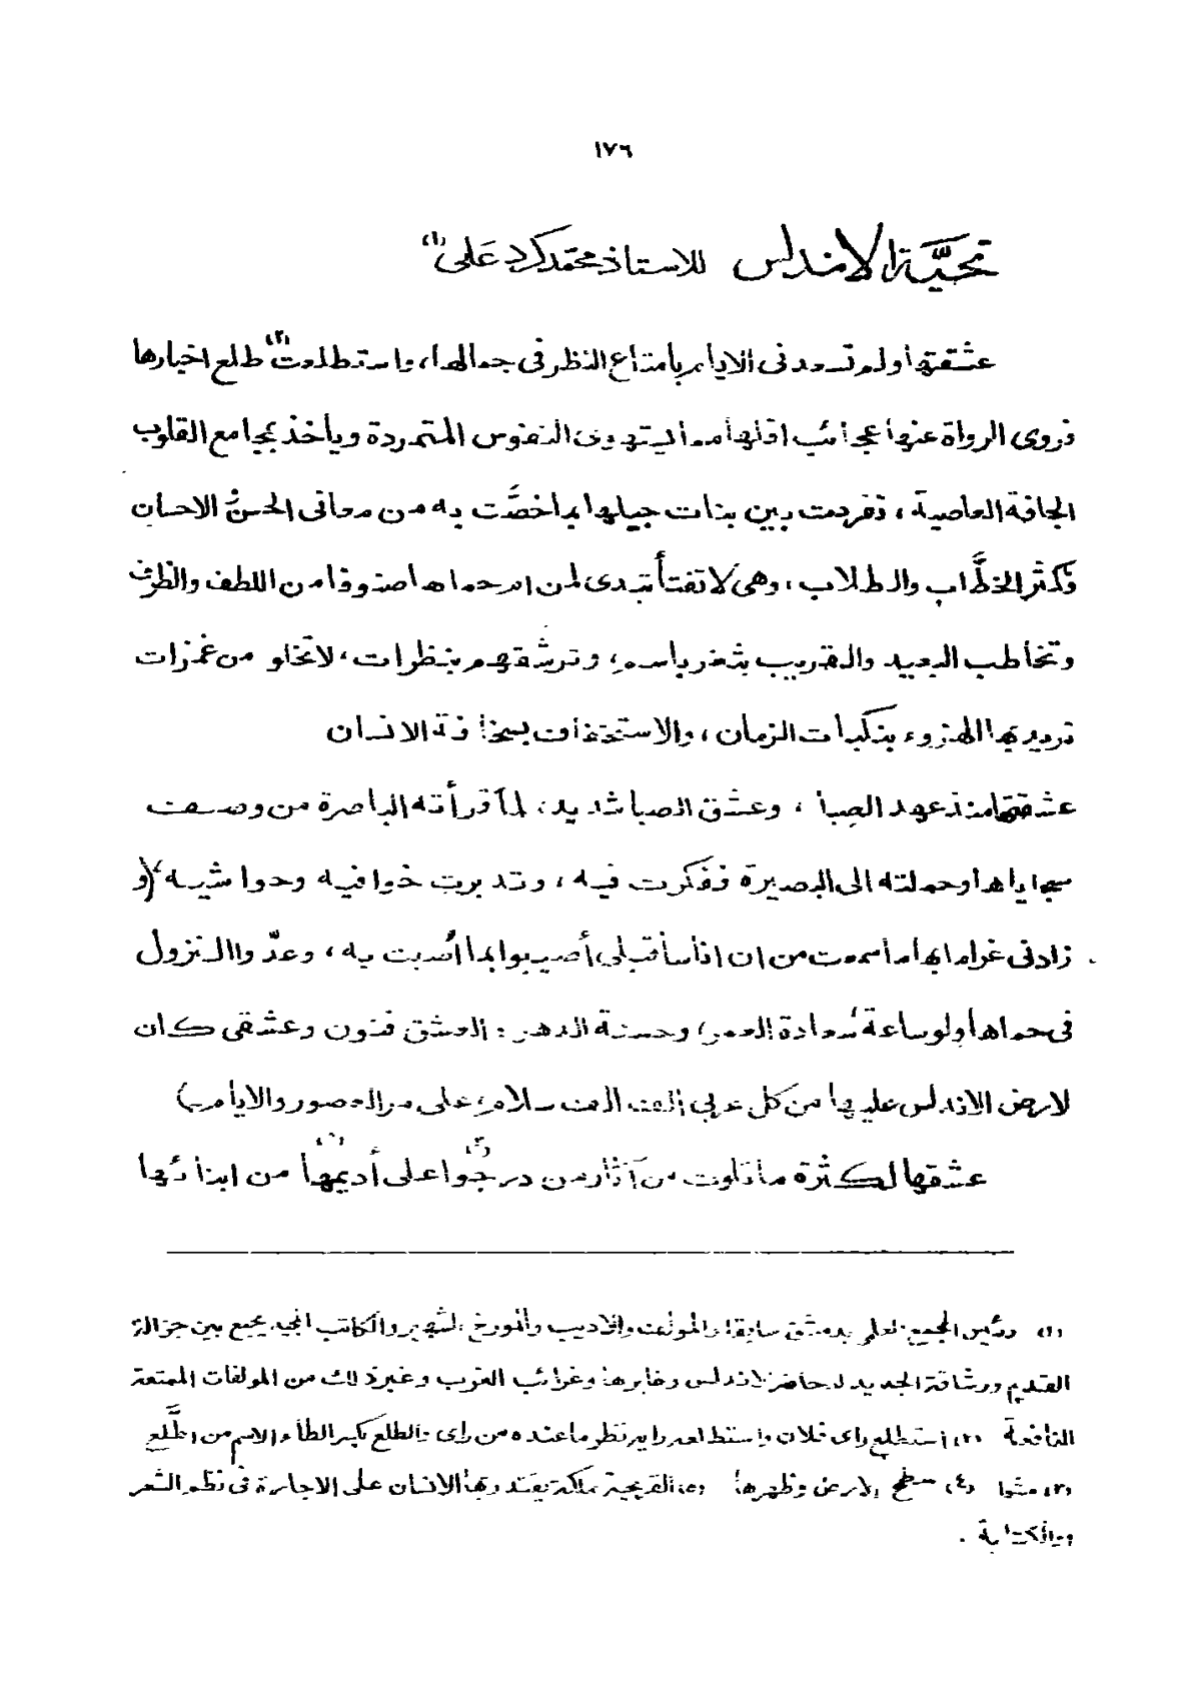 ١٧٦
تحيَّة الاندلس للاستاذ محمد كرد علي (١)
عشقتها ولم تسعدني الايام بامتاع النظر في جمالها، واستطلعت (٢) طلع اخبارها
فروى الرواة عنها عجائب اقلها مما يستهوى النفوس المتمردة ويأخذ بمجامع القلوب
الجافة العاصية، تفردت بين بنات جيلها بما خصَّت به من معاني الحسن والاحسان
فكثر الخطَّاب والطلاب، وهى لا تفتأ تبدى لمن امَّ حماها صنوفا من اللطف والظرف
وتخاطب البعيد والقريب بثغر باسم، وترشقهم بنظرات، لا تخلو من غمزات
تريد بها الهزوء بنكبات الزمان، والاستخفاف بسخافة الانسان
عشقتها منذ عهد الصبا، وعشق الصبا شديد، لما قرأته الباصرة من وصف
سجاياها وحملته الى البصيرة ففكرت فيه، وتدبرت خوافيه وحواشيه، و
زادنى غراما بها ما سمعت من ان اناسا قبلى أصيبوا بما اُصبت به، وعدّوا النزول
فى حماها ولو ساعة سُعادة العمر، وحسنة الدهر: العشق فنون وعشقى كان
لارض الاندلس عليها من كل عربي الف الف سلام، على مر العصور والايام
عشقها لكثرة ما تلوت من آثار من درجُوا (٣) على أديمها (٤) من ابنائها
(١) رئيس المجمع العلمي بدمشق سابقا والمؤلف والاديب والمورخ الشهير والكاتب المجيد يجمع بين جزالة
القديم ورشاقة الجديد له حاضر الاندلس وغابرها وغرائب الغرب وغير ذلك من المولفات الممتعة
النافعة (٢) استطلع راى فلان واستطلعه رايه نظر ما عنده من راى والطلع بكسر الطاء الاسم من اطَّلع
(٣) مشوا (٤) سطح الارض وظهرها (٥) القريحة ملكة يقتدر بها الانسان على الاجادة فى نظم الشعر
والكتابة .